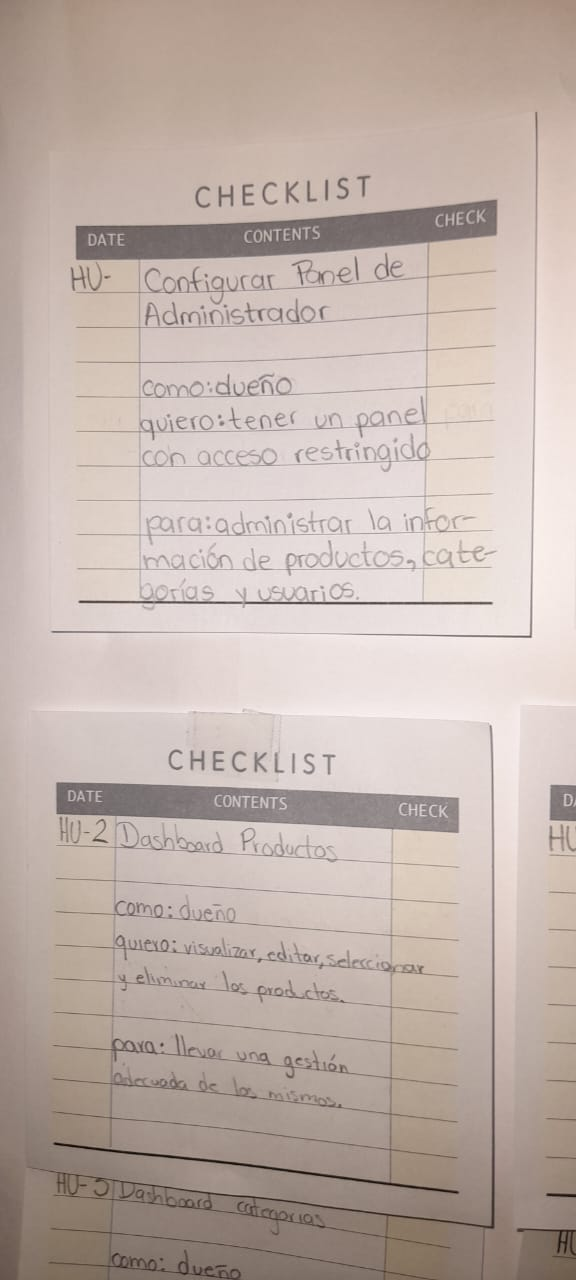 CHECKLIST
DATE CONTENTS CHECK
HU- Configurar Panel de
Administrador
como:dueño
quiero:tener un panel
con acceso restringido
para:administrar la infor-
mación de productos, cate-
gorías y usuarios.
CHECKLIST
DATE CONTENTS CHECK
HU-2 Dashboard Productos
como: dueño
quiero: visualizar, editar, seleccionar
y eliminar los productos.
para: llevar una gestión
adecuada de los mismos.
HU-3 Dashboard categorias
como: dueño
DA
HU
HU